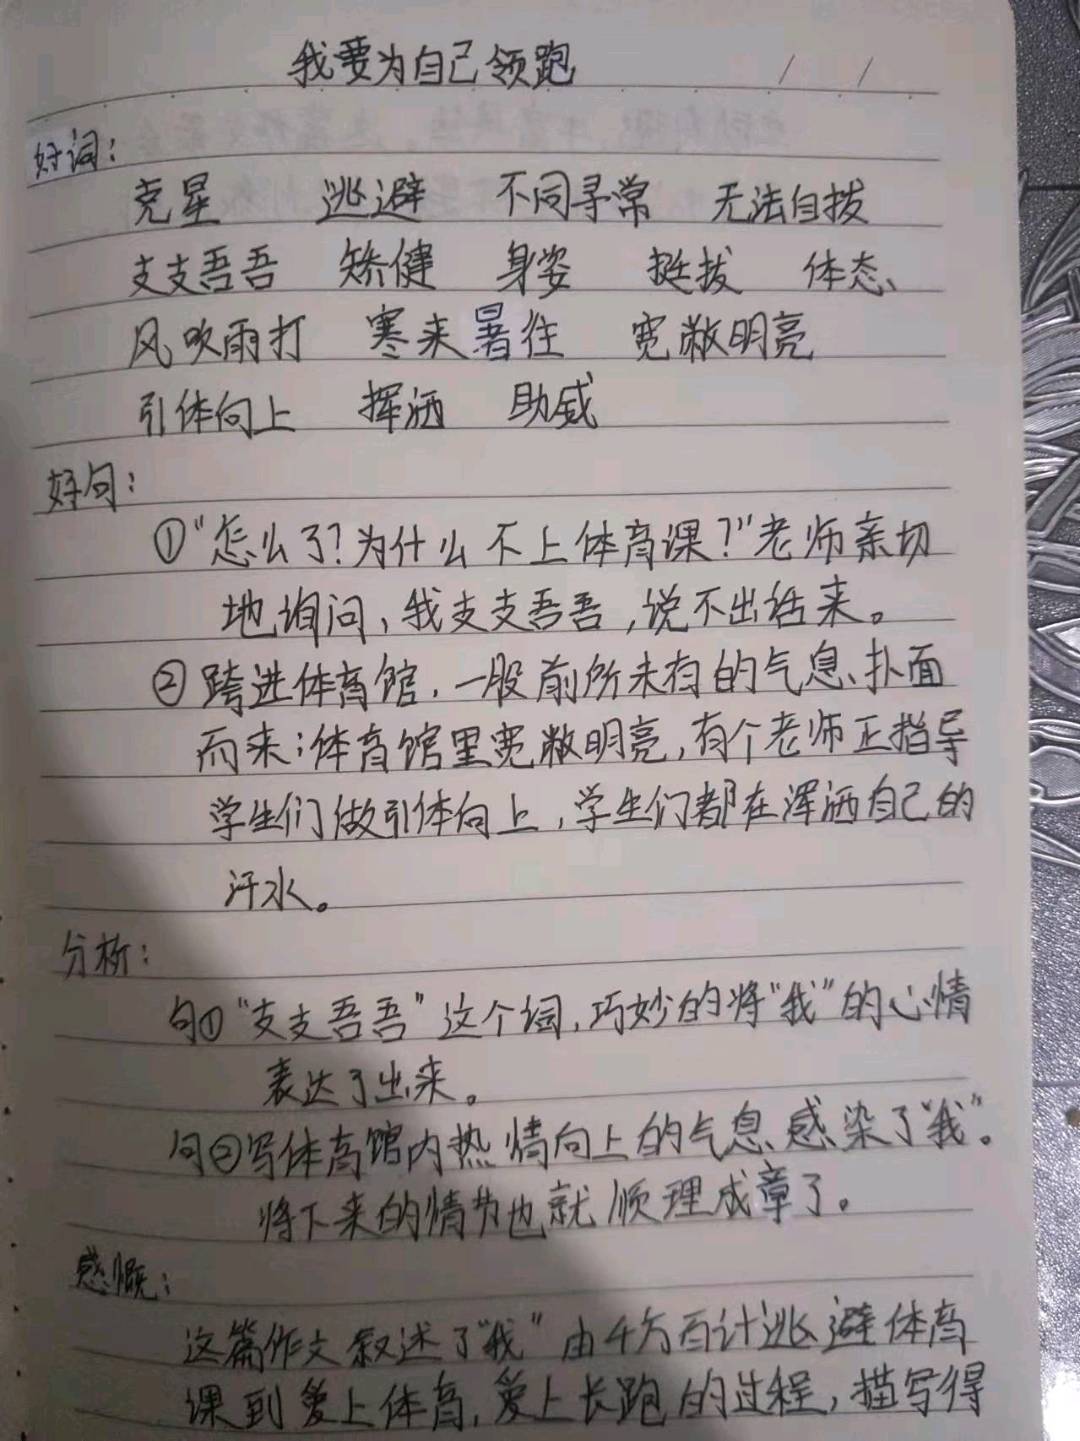 我要为自己领跑 / /
好词：
克星 逃避 不同寻常 无法自拔
支支吾吾 矫健 身姿 挺拔 体态
风吹雨打 寒来暑往 宽敞明亮
引体向上 挥洒 助威
好句：
①“怎么了？为什么不上体育课？”老师亲切
地询问，我支支吾吾，说不出话来。
②跨进体育馆，一股前所未有的气息扑面
而来；体育馆里宽敞明亮，有个老师正指导
学生们做引体向上，学生们都在浑洒自己的
汗水。
分析：
句①“支支吾吾”这个词，巧妙的将“我”的心情
表达了出来。
句②写体育馆内热情向上的气息感染了“我”。
将下来的情节也就顺理成章了。
感慨：
这篇作文叙述了“我”由千方百计逃避体育
课到爱上体育，爱上长跑的过程，描写得